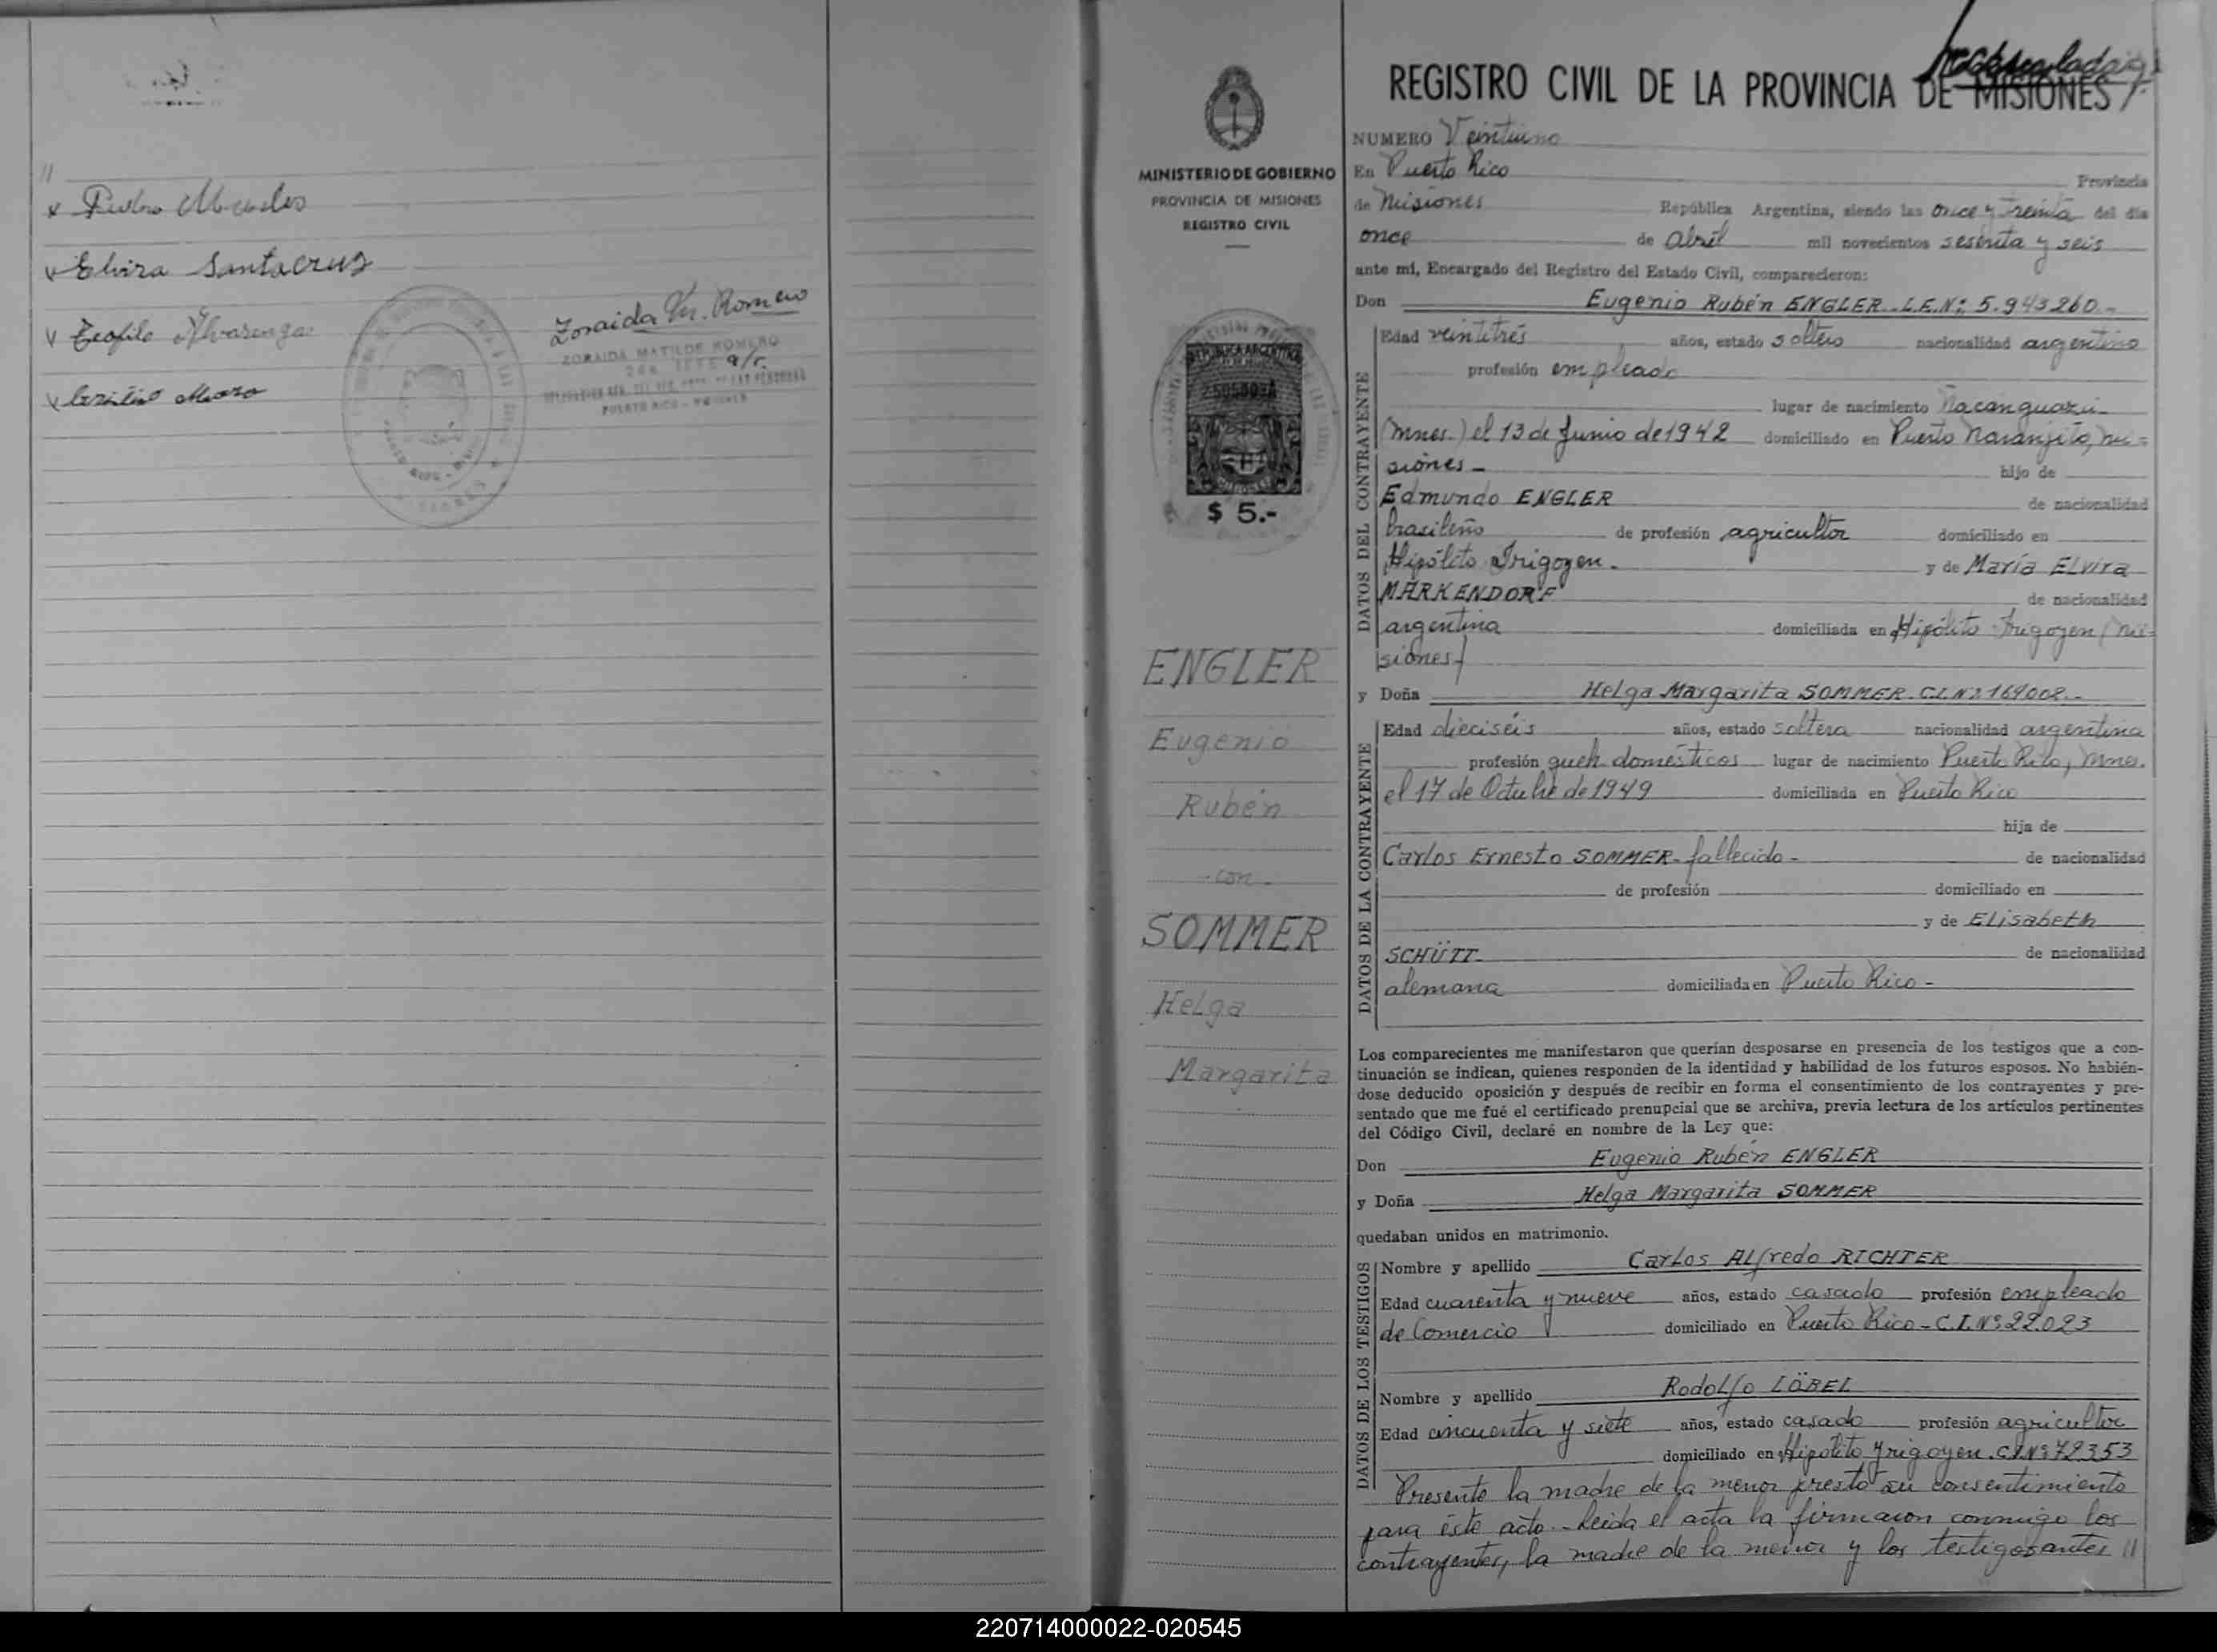 //
x Pedro
v Elvira Santacruz
v Teofilo Alvarenga
v
Zoraida M. Romero
ZORAIDA MATILDE ROMERO
a/c.
PUERTO RICO - MISIONES
MINISTERIO DE GOBIERNO
PROVINCIA DE MISIONES
REGISTRO CIVIL
REPUBLICA ARGENTINA
MISIONES
$ 5.-
ENGLER
Eugenio
Rubén
- con -
SOMMER
Helga
Margarita
REGISTRO CIVIL DE LA PROVINCIA DE MISIONES
NUMERO Veintiuno
En Puerto Rico Provincia
de Misiones República Argentina, siendo las once y treinta del día
once de Abril mil novecientos sesenta y seis
ante mí, Encargado del Registro del Estado Civil, comparecieron:
Don Eugenio Rubén ENGLER - L.E.Nº: 5.943260.-
DATOS DEL CONTRAYENTE
Edad veintitrés años, estado soltero nacionalidad argentino
profesión empleado
lugar de nacimiento Ñacanguazú
(Mnes.) el 13 de Junio de 1942 domiciliado en Puerto Naranjito, Mi=
siones - hijo de
Edmundo ENGLER de nacionalidad
brasileño de profesión agricultor domiciliado en
Hipólito Irigoyen. y de María Elvira
MARKENDORF de nacionalidad
argentina domiciliada en Hipólito Irigoyen (Mi=
siones)
y Doña Helga Margarita SOMMER. C.I.Nº: 169002.-
DATOS DE LA CONTRAYENTE
Edad dieciséis años, estado soltera nacionalidad argentina
profesión queh. domésticos lugar de nacimiento Puerto Rico, Mnes.
el 17 de Octubre de 1949 domiciliada en Puerto Rico
hija de
Carlos Ernesto SOMMER - fallecido - de nacionalidad
de profesión domiciliado en
y de Elisabeth
SCHÜTT de nacionalidad
alemana domiciliada en Puerto Rico -
Los comparecientes me manifestaron que querían desposarse en presencia de los testigos que a con-
tinuación se indican, quienes responden de la identidad y habilidad de los futuros esposos. No habién-
dose deducido oposición y después de recibir en forma el consentimiento de los contrayentes y pre-
sentado que me fué el certificado prenupcial que se archiva, previa lectura de los artículos pertinentes
del Código Civil, declaré en nombre de la Ley que:
Don Eugenio Rubén ENGLER
y Doña Helga Margarita SOMMER
quedaban unidos en matrimonio.
DATOS DE LOS TESTIGOS
Nombre y apellido Carlos Alfredo RICHTER
Edad cuarenta y nueve años, estado casado profesión empleado
de Comercio domiciliado en Puerto Rico - C.I.Nº: 22.023
Nombre y apellido Rodolfo LÖBEL
Edad cincuenta y siete años, estado casado profesión agricultor
domiciliado en Hipólito Yrigoyen. C.I.Nº: 72353
Presente la madre de la menor prestó su consentimiento
para éste acto. - Leida el acta la firmaron conmigo los
contrayentes, la madre de la menor y los testigos antes //
220714000022-020545